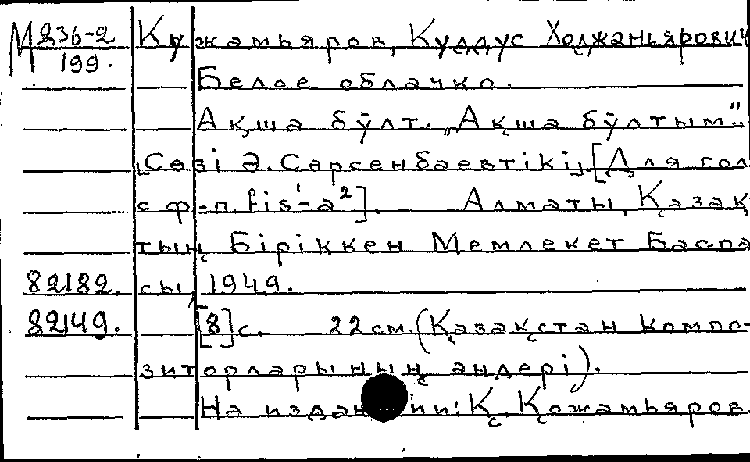 М 236-2 Кужамьяров, Куддус Ходжаньярович
199. Белое облачко.
Ақша бұлт. „Ақша бұлтым"
„Сөзі Ә. Сәрсенбаевтікі„ [Для гол
с ф-п. fis¹-a²]. Алматы, Қазақ
тың Біріккен Мемлекет Баспа
82182. сы, 1949.
82149. [8] с. 22 см. (Қазақстан компо-
зиторларының әндері).
На издании: Қ. Қожамьяров.